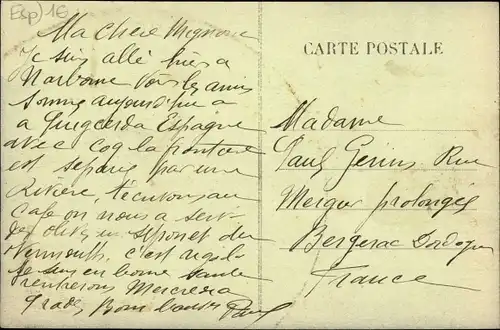 Esp) 16
Ma chère Mignonne
Je suis allé hier a
Narbonne Vois les amis
Somme aujourd'hui a
a Puigcerda Espagne
avec la
est separé par une
Rivière,
Cafe on nous a servi
des olives un du
Vermouth, c'est
Je suis en bonne santé
rentrerons Mercredi
Bons baisers Paul
CARTE POSTALE
Madame
Paul Rue
prolongée
Bergerac Dordogne
France